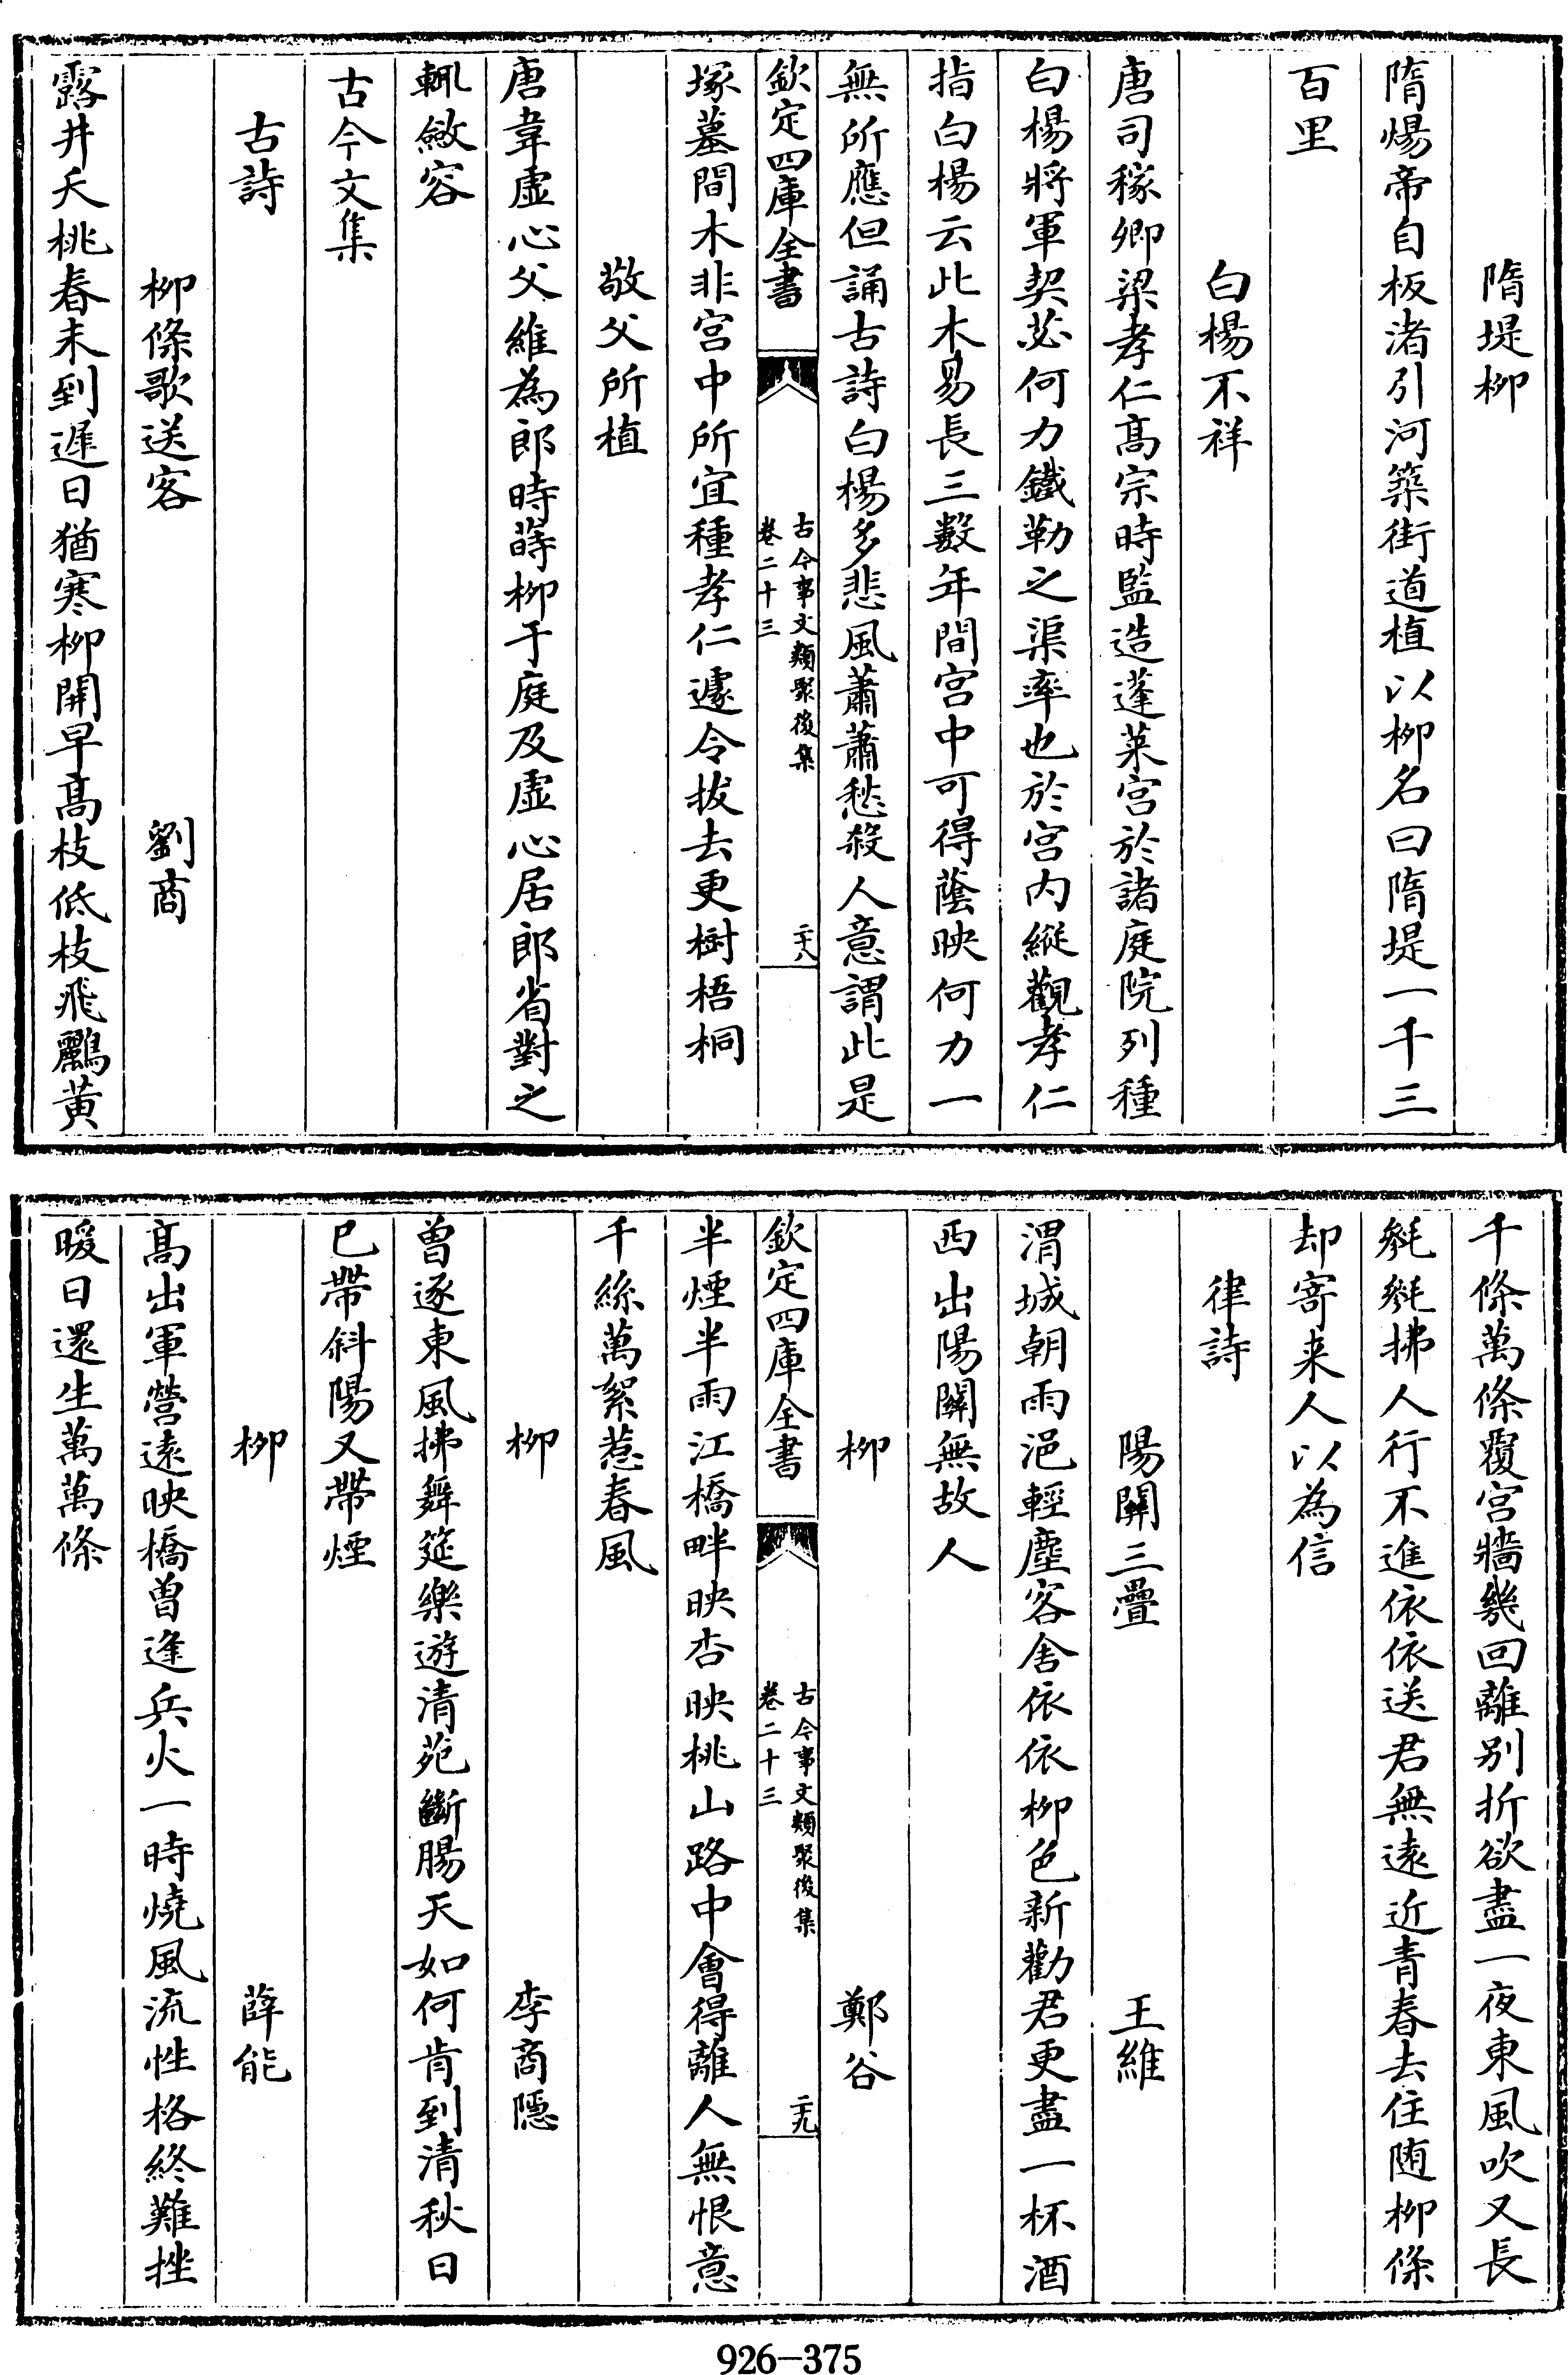 隋堤柳
隋煬帝自板渚引河築街道植以柳名曰隋堤一千三
百里
白楊不祥
唐司稼卿梁孝仁髙宗時監造蓬萊宫於諸庭院列種
白楊將軍契苾何力鐵勒之渠率也於宫内縱觀孝仁
指白楊云此木易長三數年間宫中可得蔭映何力一
無所應但誦古詩白楊多悲風蕭蕭愁殺人意謂此是
欽定四庫全書
古今事文類聚後集
卷二十三
二十八
塚墓間木非宫中所宜種孝仁遽令拔去更樹梧桐
敬父所植
唐韋虛心父維為郎時蒔柳于庭及虛心居郎省對之
輒斂容
古今文集
古詩
柳條歌送客 劉商
露井夭桃春未到遲日猶寒柳開早髙枝低枝飛鸝黃
千條萬條覆宫牆幾回離别折欲盡一夜東風吹又長
毿毿拂人行不進依依送君無遠近青春去住随柳條
却寄来人以為信
律詩
陽關三疊 王維
渭城朝雨浥輕塵客舍依依柳色新勸君更盡一杯酒
西出陽關無故人
柳 鄭谷
欽定四庫全書
古今事文類聚後集
卷二十三
二十九
半煙半雨江橋畔映杏映桃山路中會得離人無恨意
千絲萬絮惹春風
柳 李商隱
曾逐東風拂舞筵樂遊清苑斷腸天如何肯到清秋日
已帶斜陽又帶煙
柳 薛能
髙出軍營遠映橋曾逢兵火一時燒風流性格終難挫
暖日還生萬萬條
926-375